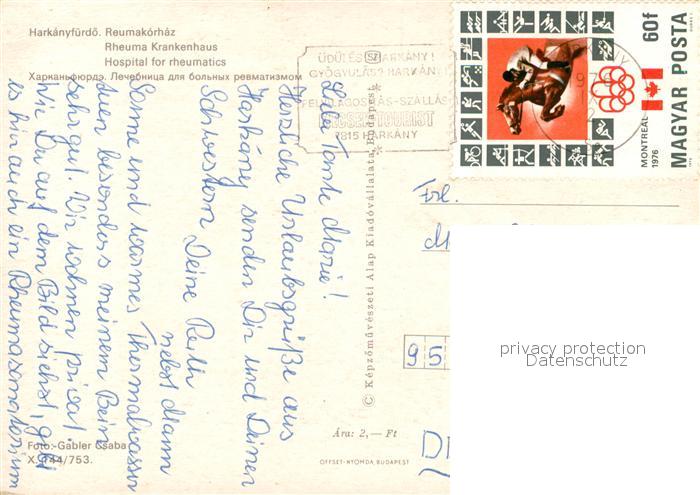 Harkányfürdő. Reumakórház
Rheuma Krankenhaus
Hospital for rheumatics
Харканьфюрдэ. Лечебница для больных ревматизмом
ÜDÜLÉS HARKÁNY!
GYÓGYULÁS? HARKÁNY!
FELVILÁGOSÍTÁS-SZÁLLÁS
MECSEK TOURIST
7815 HARKÁNY
MONTREAL
1976
60f
MAGYAR POSTA
Liebe Tante Marie!
Herzliche Urlaubsgrüße aus
Harkány senden Dir und Deinen
Schwestern Deine Resli
nebst Mann
Sonne und warmes Thermalwasser
tuen besonders meinem Bein
sehr gut. Wir wohnen privat.
Wie Du auf dem Bild siehst, gibt
es hier auch ein Rheumasanatorium
Frl.
M
95
© Képzőművészeti Alap Kiadóvállalata, Budapest
Ára: 2,— Ft
OFFSET-NYOMDA, BUDAPEST
Foto: Gábler Csaba
X. 144/753.
privacy protection
Datenschutz